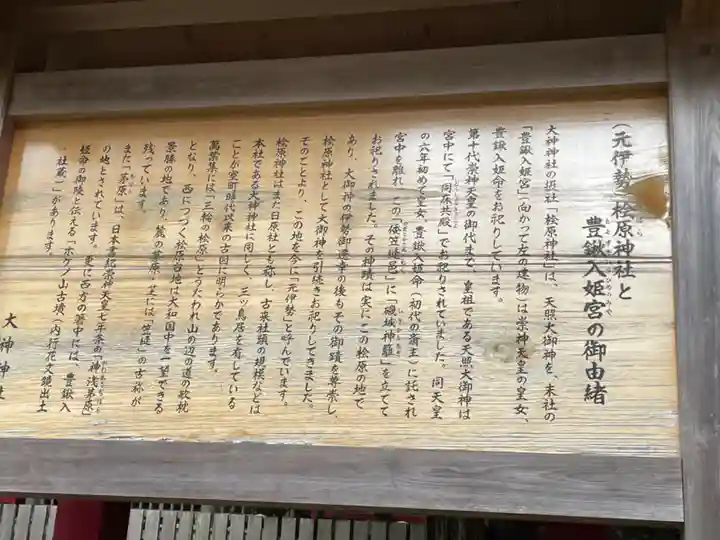 (元伊勢)桧原神社と
豊鍬入姫宮の御由緒
大神神社の摂社「桧原神社」は、天照大御神を、末社の
「豊鍬入姫宮」(向かって左の建物)は崇神天皇の皇女、
豊鍬入姫命をお祀りしています。
第十代崇神天皇の御代まで、皇祖である天照大御神は
宮中にて「同床共殿」でお祀りされていました。同天皇
の六年初めて皇女、豊鍬入姫命(初代の斎王)に託され
宮中を離れ、この「倭笠縫邑」に「磯城神籬」を立てて
お祀りされました。その神蹟は実にこの桧原の地で
あり、大御神の伊勢御遷幸の後もその御蹟を尊崇し、
桧原神社として大御神を引続きお祀りしてきました。
そのことより、この地を今に「元伊勢」と呼んでいます。
桧原神社はまた日原社とも称し、古来社頭の規模などは
本社である大神神社に同じく、三ツ鳥居を有している
ことが室町時代以来の古図に明らかであります。
萬葉集には「三輪の桧原」とうたわれ山の辺の道の歌枕
となり、西につづく桧原台地は大和国中を一望できる
景勝の地であり、麓の茅原・芝には「笠縫」の古称が
残っています。
また「茅原」は、日本書紀崇神天皇七年条の「神浅茅原」
の地とされています。更に西方の箸中には、豊鍬入
姫命の御陵と伝える「ホケノ山古墳」(内行花文鏡出土
社蔵)」があります。
大神神社